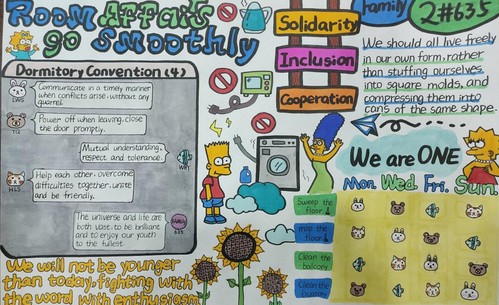 Room Affairs
go Smoothly
Dormitory Convention (4)
Communicate in a timely manner
when conflicts arise, without any
quarrel.
Power off when leaving, close
the door promptly.
Mutual understanding,
respect and tolerance.
Help each other, overcome
difficulties together, unite
and be friendly.
The universe and life are
both vast, to be brilliant
and to enjoy our youth
to the fullest.
We will not be younger
than today, fighting with
the word with enthusiasm
Solidarity
Inclusion
Cooperation
Family
2#635
We should all live freely
in our own form, rather
than stuffing ourselves
into square molds, and
compressing them into
cans of the same shape.
We are ONE
Mon. Wed. Fri. Sun.
Sweep the
floor
mop the
floor
Clean the
balcony
Clean the